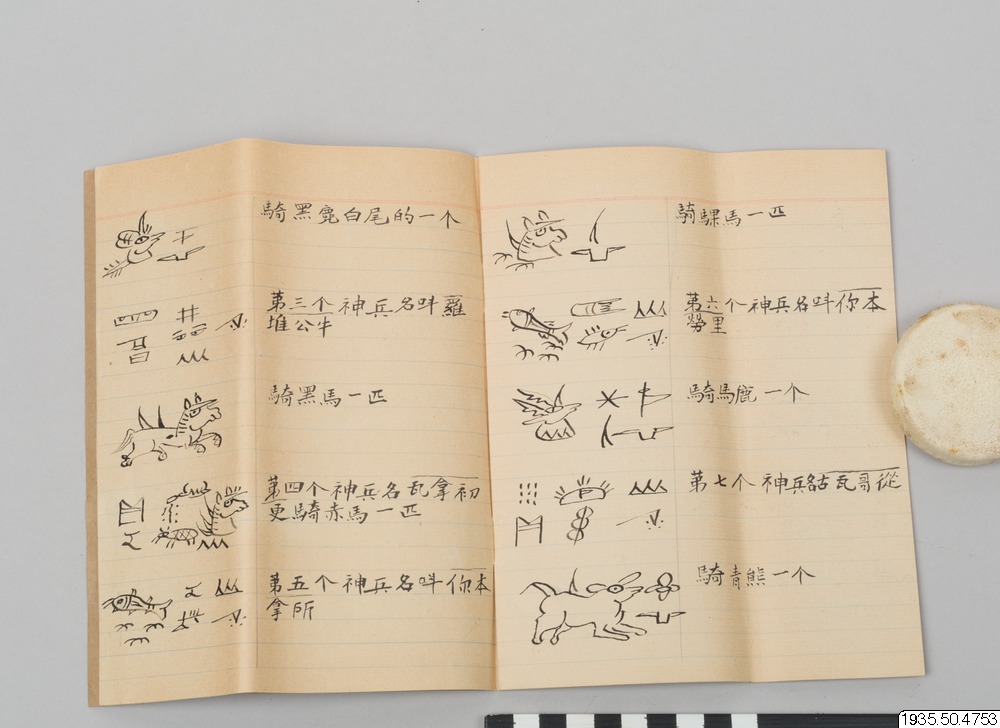 騎黑鹿白尾的一个
第三个神兵名呌羅
堆公牛
騎黑馬一匹
第四个神兵名瓦拿初
更騎赤馬一匹
第五个神兵名呌你本
拿所
騎騾馬一匹
第六个神兵名呌你本
勞里
騎馬鹿一个
第七个神兵名 瓦哥從
騎青熊一个
1935.50.4753